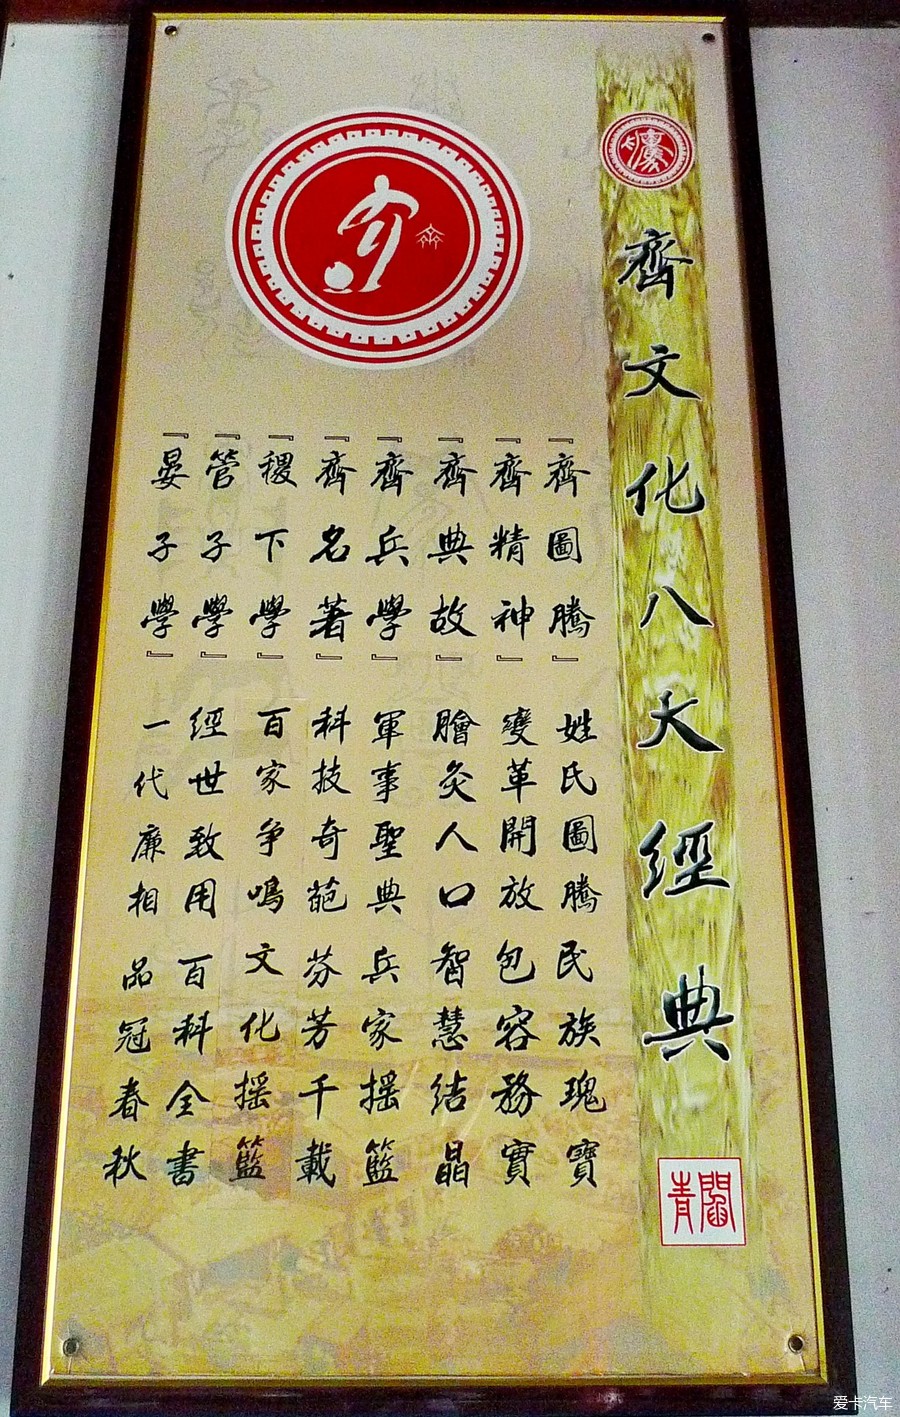 齊文化八大經典
『齊圖騰』姓氏圖騰民族瑰寶
『齊精神』變革開放包容務實
『齊典故』膾炙人口智慧結晶
『齊兵學』軍事聖典兵家摇籃
『齊名著』科技奇葩芬芳千載
『稷下學』百家争鳴文化摇籃
『管子學』經世致用百科全書
『晏子學』一代廉相品冠春秋
爱卡汽车